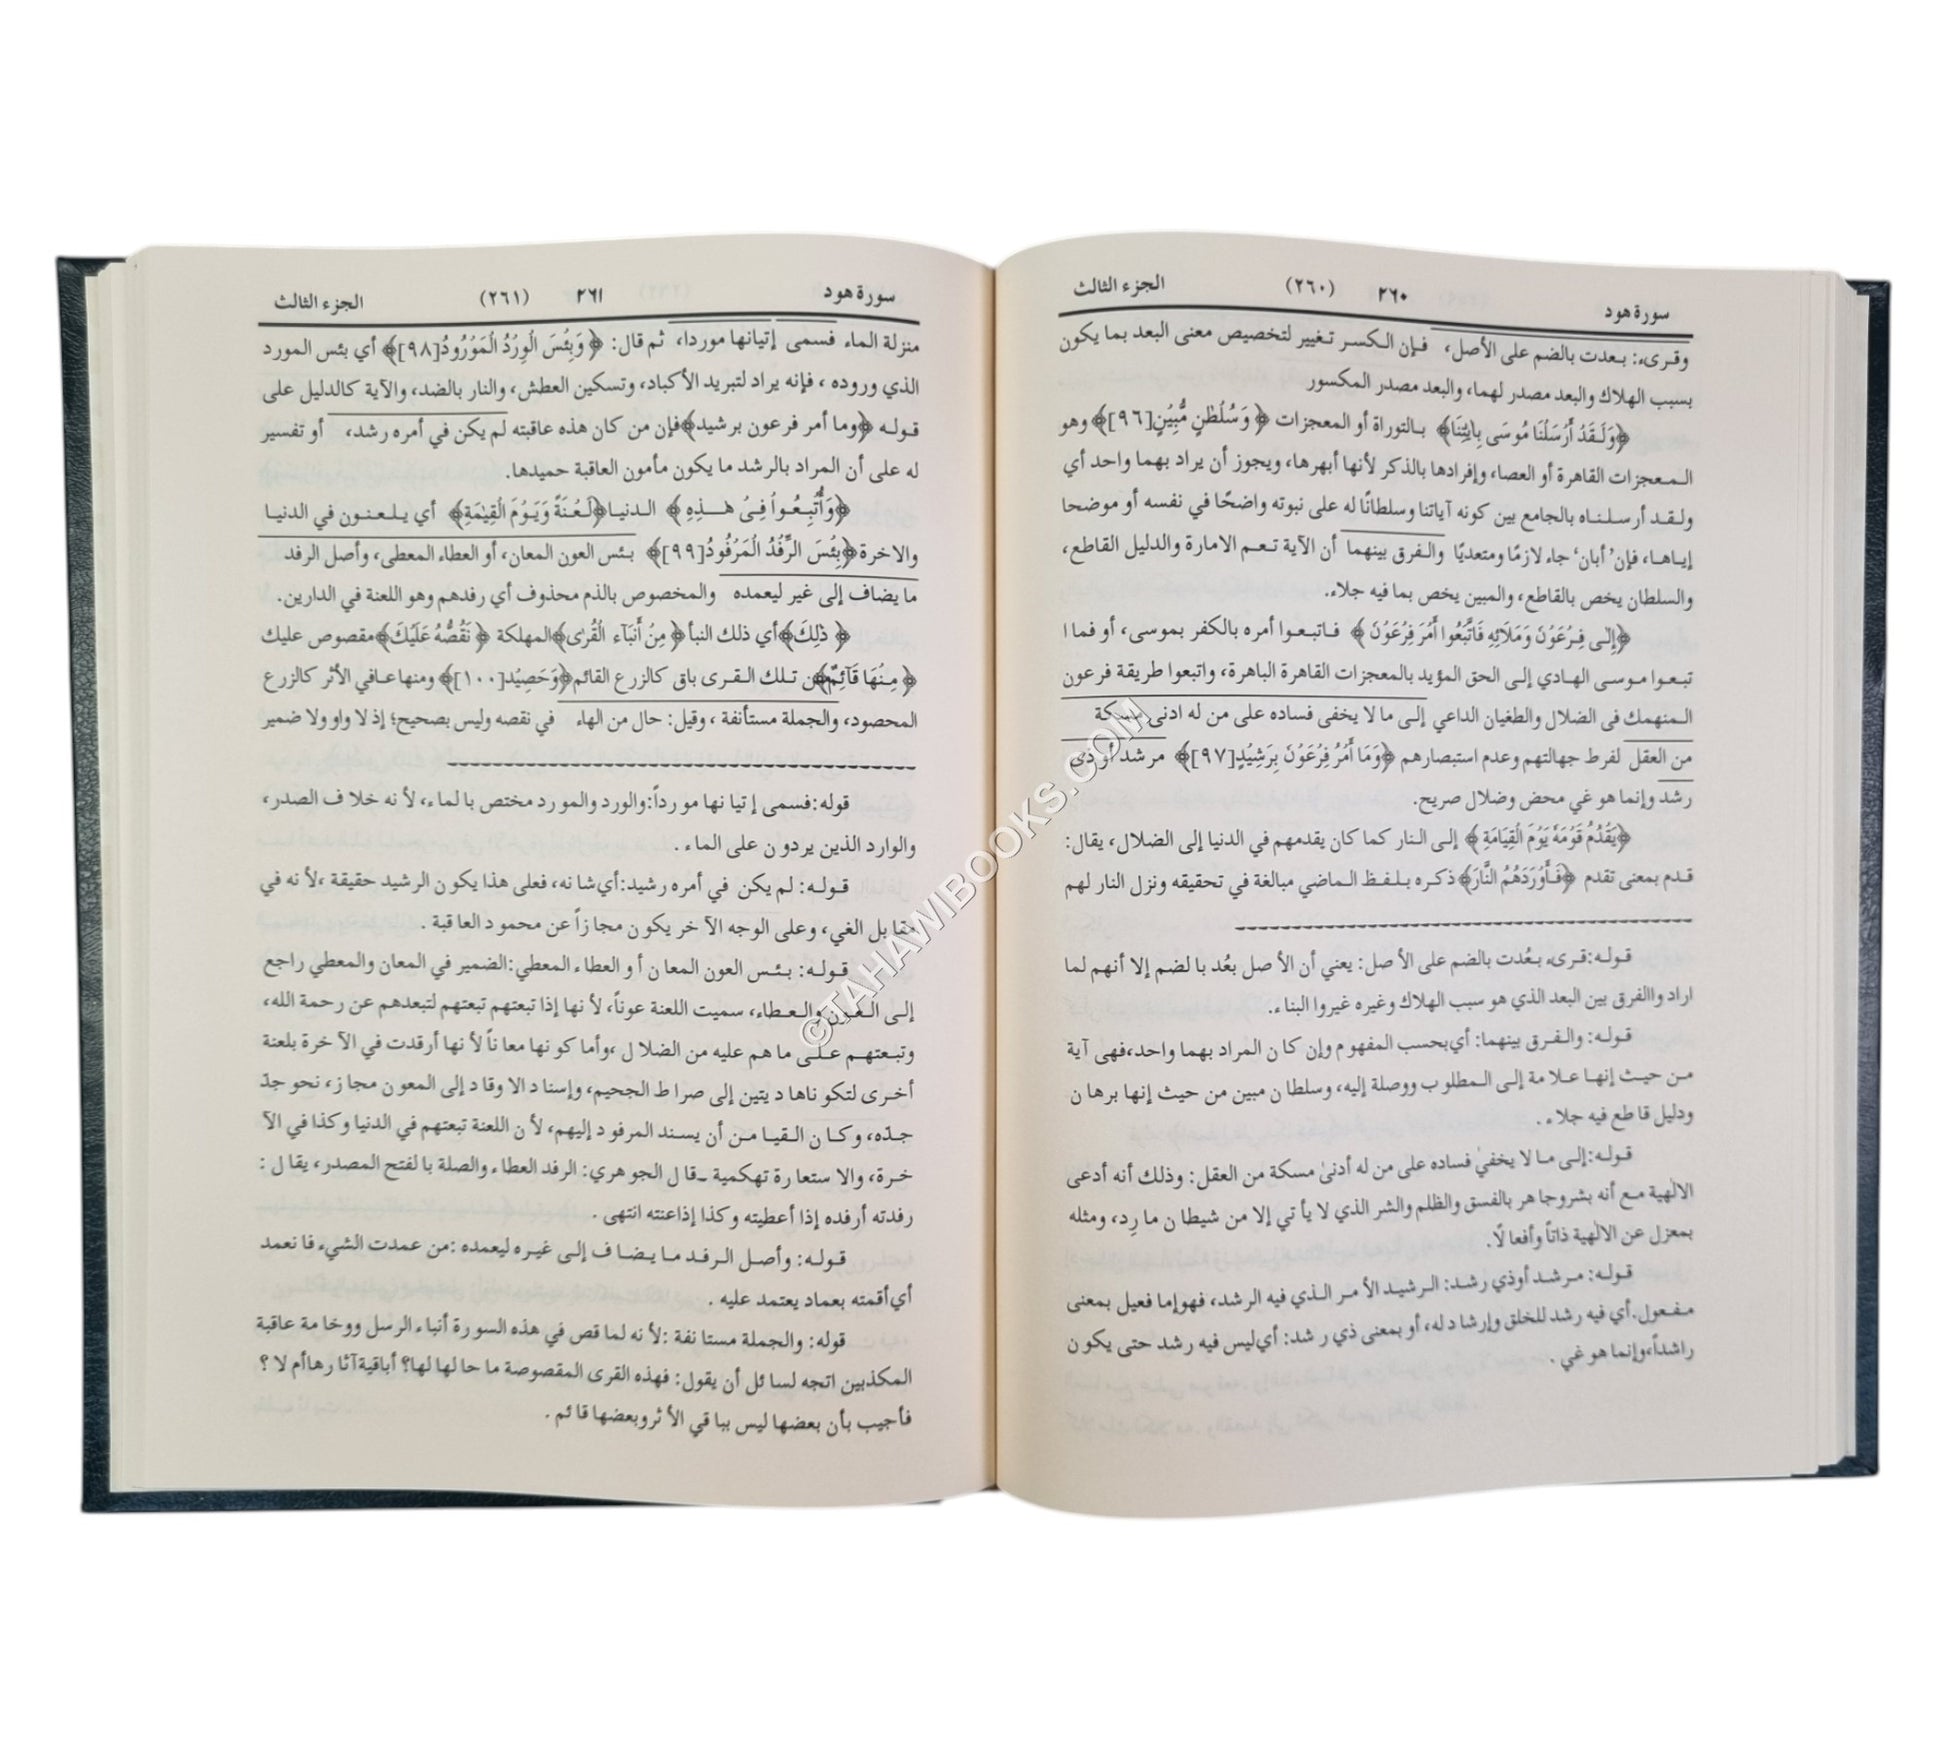 سورة هود ٢٦٠ (٢٦٠) الجزء الثالث
وقرىء: بعدت بالضم على الأصل، فإن الكسر تغيير لتخصيص معنى البعد بما يكون
بسبب الهلاك والبعد مصدر لهما، والبعد مصدر المكسور
﴿وَلَقَدْ أَرْسَلْنَا مُوسَى بِاٰيٰتِنَا﴾ بالتوراة أو المعجزات ﴿ وَسُلْطٰنٍ مُّبِيْنٍ[٩٦]﴾ وهو
المعجزات القاهرة أو العصا، وإفرادها بالذكر لأنها أبهرها، ويجوز أن يراد بهما واحد أي
ولقد أرسلناه بالجامع بين كونه آياتنا وسلطانًا له على نبوته واضحًا في نفسه أو موضحا
إياها، فإن’أبان‘ جاء لازمًا ومتعديًا والفرق بينهما أن الآية تعم الامارة والدليل القاطع،
والسلطان يخص بالقاطع، والمبين يخص بما فيه جلاء.
﴿إِلٰى فِرْعَوْنَ وَمَلَائِهِ فَاتَّبَعُوا أَمْرَ فِرْعَوْنَ ﴾ فاتبعوا أمره بالكفر بموسى، أو فما ا
تبعوا موسى الهادي إلى الحق المؤيد بالمعجزات القاهرة الباهرة، واتبعوا طريقة فرعون
المنهمك فى الضلال والطغيان الداعي إلى ما لا يخفى فساده على من له ادنى مسكة
من العقل لفرط جهالتهم وعدم استبصارهم ﴿وَمَا أَمْرُ فِرْعَوْنَ بِرَشِيْدٍ[٩٧]﴾ مرشد أو ذى
رشد وإنما هو غي محض وضلال صريح.
﴿يَقْدُمُ قَوْمَهُ يَوْمَ الْقِيَامَةِ ﴾ إلى النار كما كان يقدمهم في الدنيا إلى الضلال، يقال:
قدم بمعنى تقدم ﴿فَأَوْرَدَهُمُ النَّارَ﴾ ذكره بلفظ الماضي مبالغة في تحقيقه ونزل النار لهم
قوله:قرىء بعُدت بالضم على الأصل: يعني أن الأصل بعُد بالضم إلا أنهم لما
اراد واالفرق بين البعد الذي هو سبب الهلاك وغيره غيروا البناء.
قوله: والفرق بينهما: أي بحسب المفهوم وإن كان المراد بهما واحد،فهى آية
من حيث إنها علامة إلى المطلوب ووصلة إليه، وسلطان مبين من حيث إنها برهان
ودليل قاطع فيه جلاء.
قوله:إلى ما لا يخفيٰ فساده على من له أدنىٰ مسكة من العقل: وذلك أنه أدعى
الالهية مع أنه بشروجاهر بالفسق والظلم والشر الذي لا يأتي إلا من شيطان مارِد، ومثله
بمعزل عن الالهية ذاتاً وأفعالًا.
قوله: مرشد أوذي رشد: الرشيد الأمر الذي فيه الرشد، فهوإما فعيل بمعنى
مفعول.أي فيه رشد للخلق وإرشاد له، أو بمعنى ذي رشد: أي ليس فيه رشد حتى يكون
راشداً،وإنما هو غي.
سورة هود ٢٦١ (٢٦١) الجزء الثالث
منزلة الماء فسمى إتيانها موردا، ثم قال: ﴿ وَبِئْسَ الْوِرْدُ الْمَوْرُودُ[٩٨]﴾ أي بئس المورد
الذي وروده ، فإنه يراد لتبريد الأكباد، وتسكين العطش، والنار بالضد، والآية كالدليل على
قوله ﴿وما أمر فرعون برشيد﴾فإن من كان هذه عاقبته لم يكن في أمره رشد، أو تفسير
له على أن المراد بالرشد ما يكون مأمون العاقبة حميدها.
﴿وَأُتْبِعُوا فِيْ هٰذِهِ ﴾ الدنيا﴿لَعْنَةً وَيَوْمَ الْقِيٰمَةِ﴾ أي يلعنون في الدنيا
والاخرة ﴿بِئْسَ الرِّفْدُ الْمَرْفُودُ[٩٩]﴾ بئس العون المعان، أو العطاء المعطى، وأصل الرفد
ما يضاف إلى غير ليعمده والمخصوص بالذم محذوف أي رفدهم وهو اللعنة في الدارين.
﴿ ذٰلِكَ﴾أي ذلك النبأ ﴿مِنْ أَنْبَآءِ الْقُرٰى﴾المهلكة ﴿ نَقُصُّهُ عَلَيْكَ﴾مقصوص عليك
﴿ مِنْهَا قَآئِمٌ﴾من تلك القرى باق كالزرع القائم﴿وَحَصِيْد[١٠٠]﴾ ومنها عافي الأثر كالزرع
المحصود، والجملة مستأنفة ، وقيل: حال من الهاء في نقصه وليس بصحيح؛ إذ لا واو ولا ضمير
قوله:فسمى إتيانها مورداً:والورد والمورد مختص بالماء، لأنه خلاف الصدر،
والوارد الذين يردون على الماء.
قوله: لم يكن في أمره رشيد:أي شانه، فعلى هذا يكون الرشيد حقيقة ،لأنه في
مقابل الغي، وعلى الوجه الآخر يكون مجازاً عن محمود العاقبة.
قوله: بئس العون المعان أو العطاء المعطي:الضمير في المعان والمعطي راجع
إلى العون والعطاء، سميت اللعنة عوناً، لأنها إذا تبعتهم تبعتهم لتبعدهم عن رحمة الله،
وتبعتهم على ما هم عليه من الضلال ،وأما كونها معاناً لأنها أرقدت في الآخرة بلعنة
أخرى لتكوناهاد يتين إلى صراط الجحيم، وإسناد الاوقاد إلى المعون مجاز، نحو جدّ
جدّه، وكان القيامن أن يسند المرفود إليهم، لأن اللعنة تبعتهم في الدنيا وكذا في الآ
خرة، والاستعارة تهكمية ـقال الجوهري: الرفد العطاء والصلة بالفتح المصدر، يقال:
رفدته أرفده إذا أعطيته وكذا إذاعنته انتهى.
قوله: وأصل الرفد ما يضاف إلى غيره ليعمده :من عمدت الشيء فانعمد
أي أقمته بعماد يعتمد عليه.
قوله: والجملة مستانفة :لأنه لما قص في هذه السورة أنباء الرسل ووخامة عاقبة
المكذبين اتجه لسائل أن يقول: فهذه القرى المقصوصة ما حالها لها؟ أباقية آثارهاأم لا؟
فأجيب بأن بعضها ليس بباقي الأثروبعضها قائم.
©TAHAWIBOOKS.COM